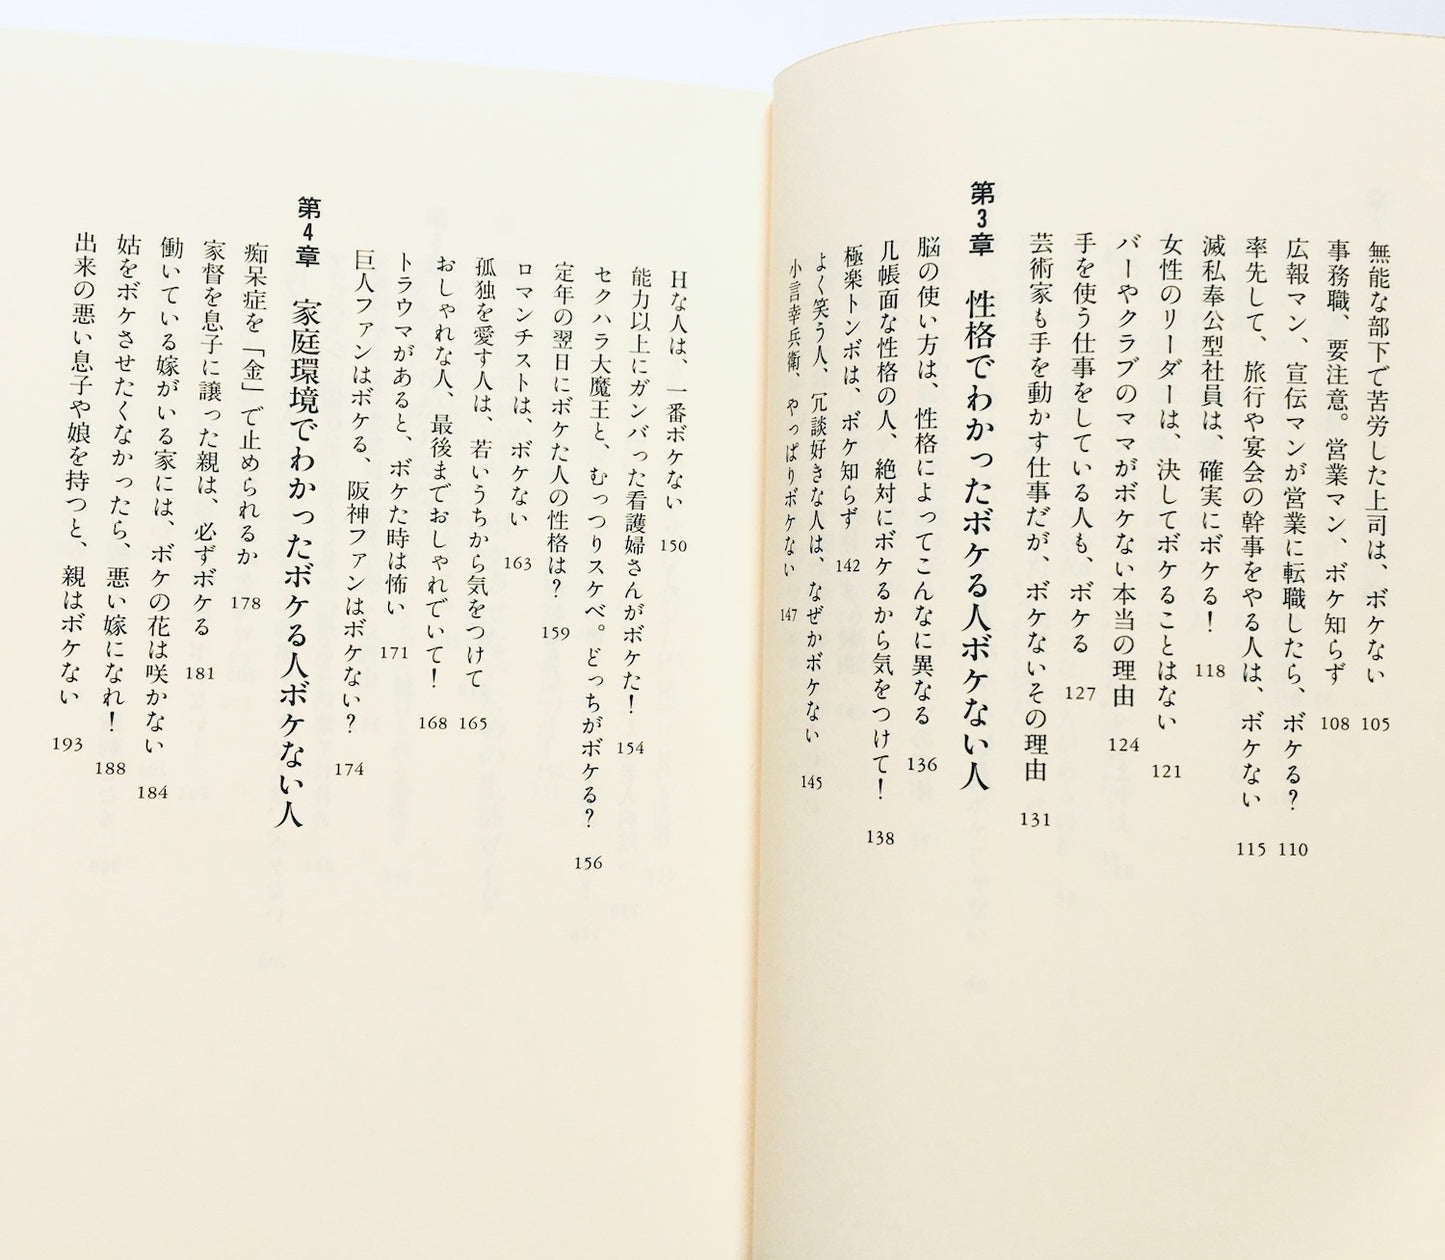 無能な部下で苦労した上司は、ボケない 105
事務職、要注意。営業マン、ボケ知らず 108
広報マン、宣伝マンが営業に転職したら、ボケる？ 110
率先して、旅行や宴会の幹事をやる人は、ボケない 115
滅私奉公型社員は、確実にボケる！ 118
女性のリーダーは、決してボケることはない 121
バーやクラブのママがボケない本当の理由 124
手を使う仕事をしている人も、ボケる 127
芸術家も手を動かす仕事だが、ボケないその理由 131
第3章 性格でわかったボケる人ボケない人
脳の使い方は、性格によってこんなに異なる 136
几帳面な性格の人、絶対にボケるから気をつけて！ 138
極楽トンボは、ボケ知らず 142
よく笑う人、冗談好きな人は、なぜかボケない 145
小言幸兵衛、やっぱりボケない 147
Hな人は、一番ボケない 150
能力以上にガンバった看護婦さんがボケた！ 154
セクハラ大魔王と、むっつりスケベ。どっちがボケる？ 156
定年の翌日にボケた人の性格は？ 159
ロマンチストは、ボケない 163
孤独を愛す人は、若いうちから気をつけて 165
おしゃれな人、最後までおしゃれでいて！ 168
トラウマがあると、ボケた時は怖い 171
巨人ファンはボケる、阪神ファンはボケない？ 174
第4章 家庭環境でわかったボケる人ボケない人
痴呆症を「金」で止められるか 178
家督を息子に譲った親は、必ずボケる 181
働いている嫁がいる家には、ボケの花は咲かない 184
姑をボケさせたくなかったら、悪い嫁になれ！ 188
出来の悪い息子や娘を持つと、親はボケない 193